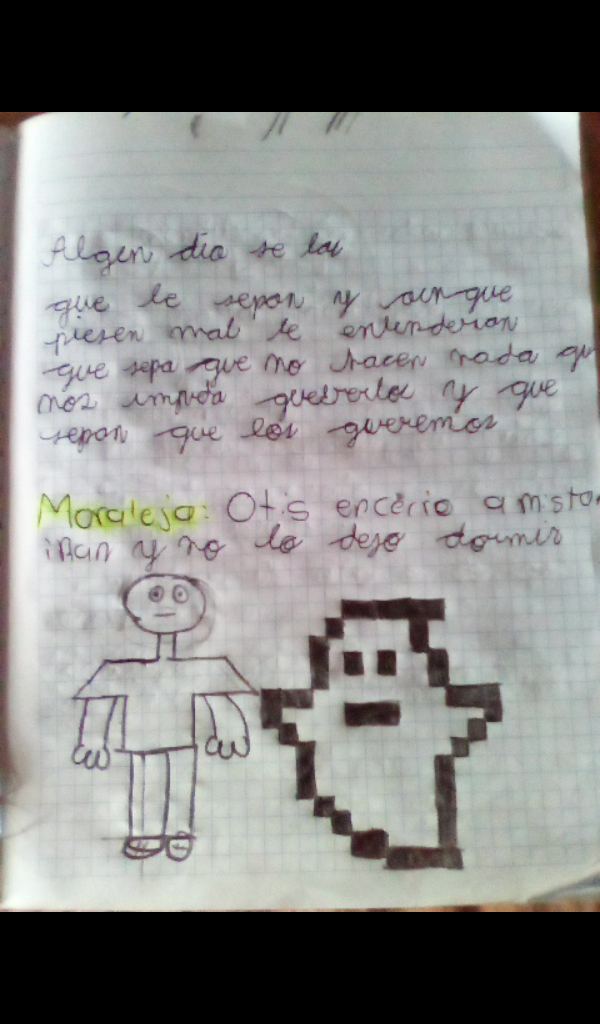 Algen dia se las
que le sepan y aunque
piesen mal le entenderan
que sepa que no hacen nada qu
nos impida quererlos y que
sepan que los queremos
Moraleja: Otis encerio a mistor
inan y no lo dejo dormir